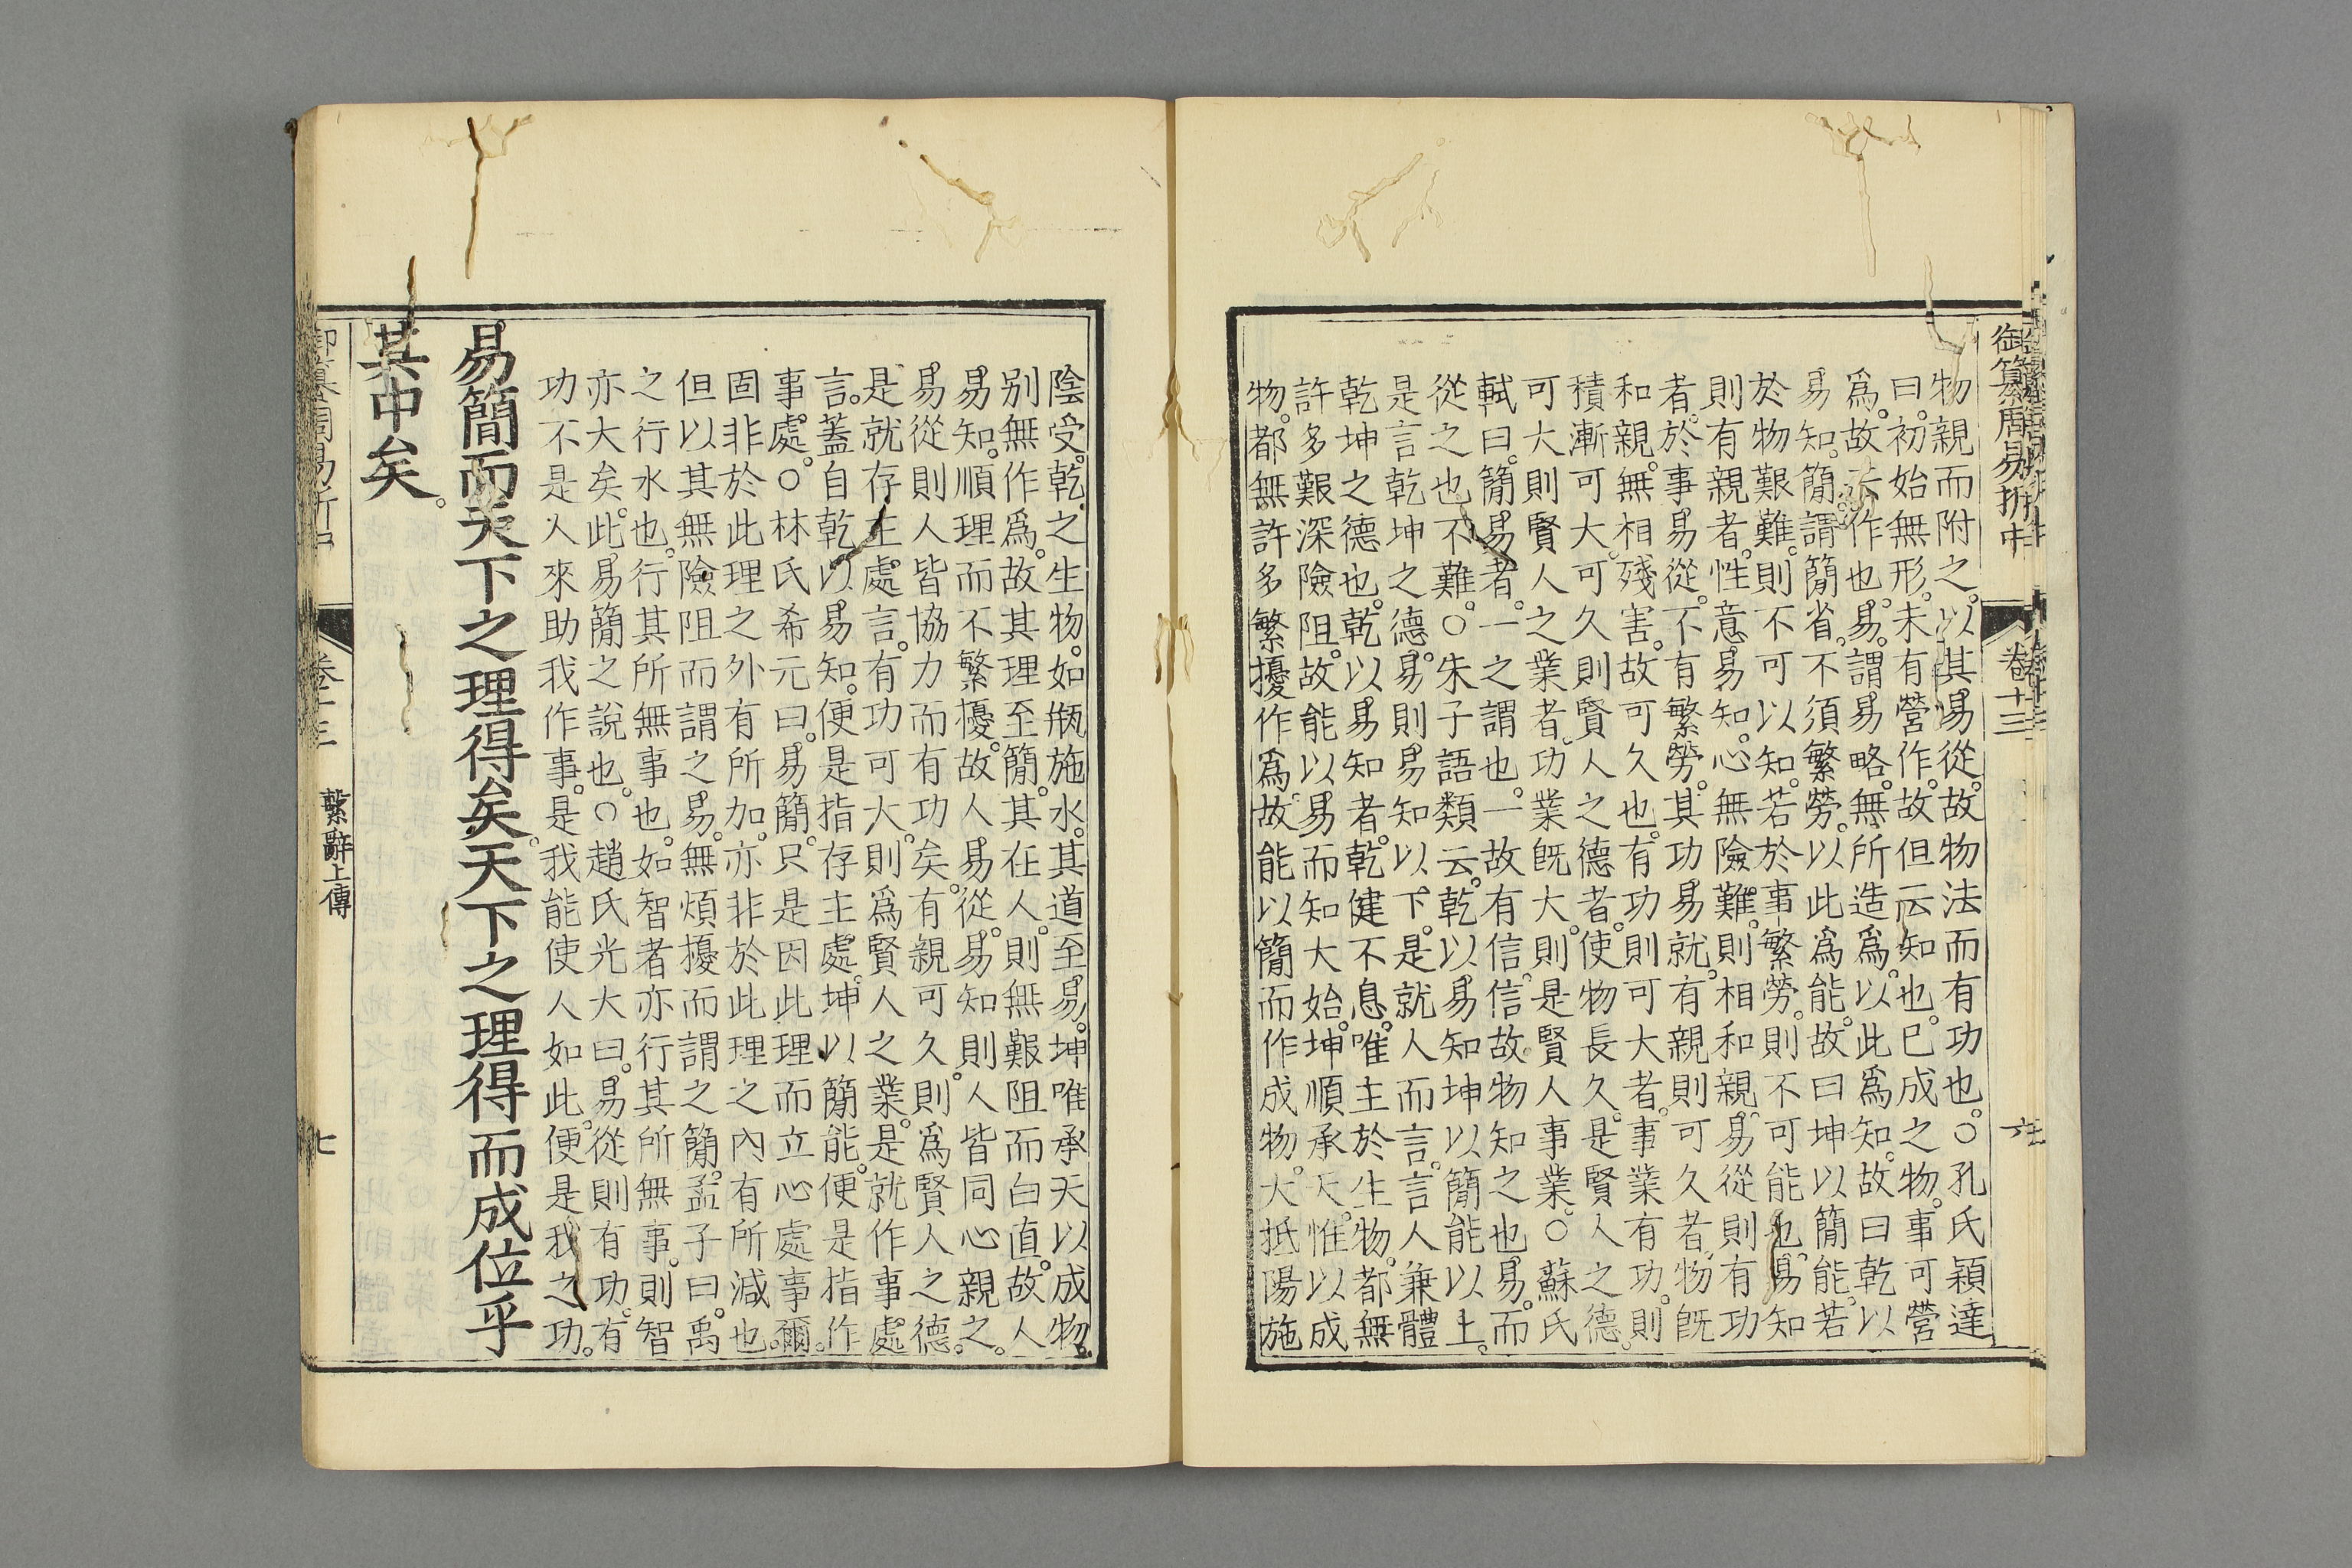 御纂周易折中
卷十三
六
物親而附之。以其易從。故物法而有功也。○孔氏穎達
曰。初始無形。未有營作。故但云知也。已成之物。事可營
爲。故云作也。易。謂易略。無所造爲。以此爲知。故曰乾以
易知。簡。謂簡省。不須繁勞。以此爲能。故曰坤以簡能。若
於物艱難。則不可以知。若於事繁勞。則不可能也。易知
則有親者。性意易知。心無險難。則相和親。易從則有功
者。於事易從。不有繁勞。其功易就。有親則可久者。物既
和親。無相殘害。故可久也。有功則可大者。事業有功。則
積漸可大。可久則賢人之德者。使物長久。是賢人之德。
可大則賢人之業者。功業既大。則是賢人事業。○蘇氏
軾曰。簡易者。一之謂也。一故有信。信故物知之也易。而
從之也不難。○朱子語類云。乾以易知坤以簡能以上。
是言乾坤之德。易則易知以下。是就人而言。言人兼體
乾坤之德也。乾以易知者。乾健不息。唯主於生物。都無
許多艱深險阻。故能以易而知大始。坤順承天。惟以成
物。都無許多繁擾作爲。故能以簡而作成物。大抵陽施
陰受。乾之生物。如瓶施水。其道至易。坤唯承天以成物。
別無作爲。故其理至簡。其在人。則無艱阻而白直。故人
易知。順理而不繁擾。故人易從。易知則人皆同心親之。
易從則人皆協力而有功矣。有親可久。則爲賢人之德。
是就存主處言。有功可大。則爲賢人之業。是就作事處
言。蓋自乾以易知。便是指存主處。坤以簡能。便是指作
事處。○林氏希元曰。易簡。只是因此理而立心處事爾。
固非於此理之外有所加。亦非於此理之內有所減也。
但以其無險阻而謂之易。無煩擾而謂之簡。孟子曰。禹
之行水也。行其所無事也。如智者亦行其所無事。則智
亦大矣。此易簡之說也。○趙氏光大曰。易從則有功。有
功不是人來助我作事。是我能使人如此。便是我之功。
易簡而天下之理得矣。天下之理得而成位乎
其中矣。
御纂周易折中
卷十三
繫辭上傳
七